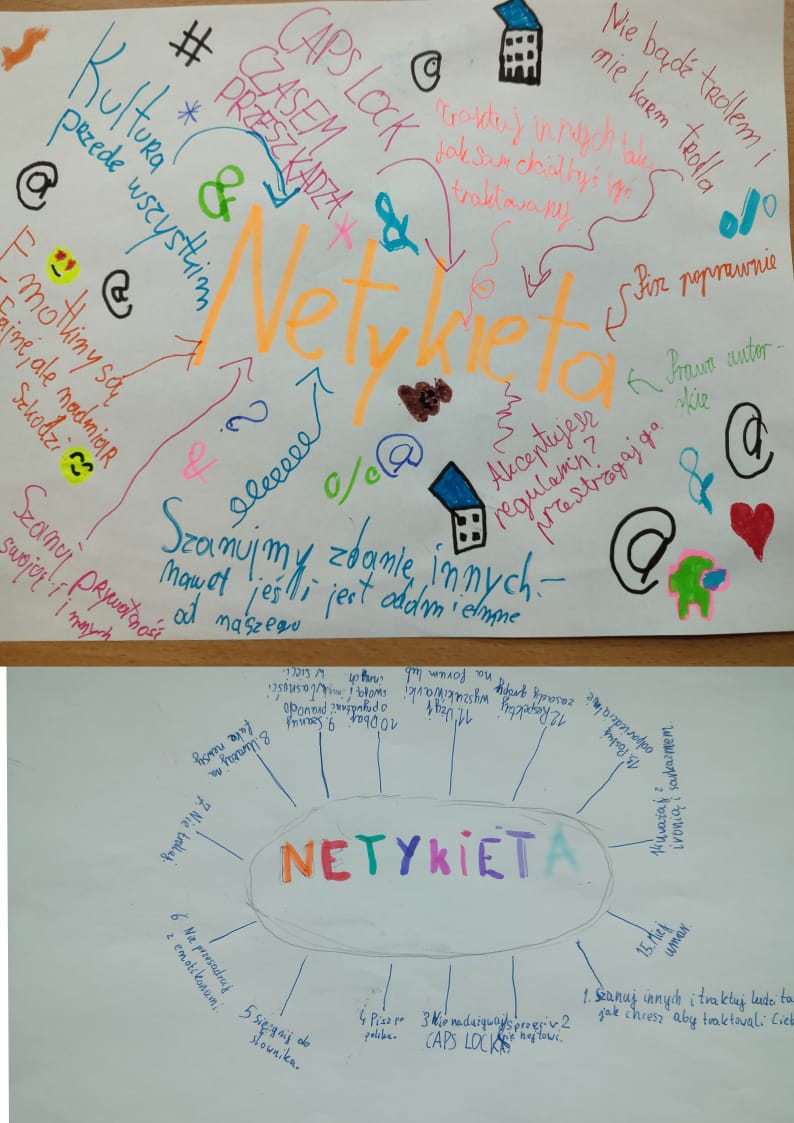 #
@
CAPS LOCK
CZASEM
PRZESZKADZA
Nie bądź trollem i
nie karm trolla
Kultura
przede wszystkim
*
&
*
&
Traktuj innych tak
jak sam chciałbyś być
traktowany.
%
@
@
Netykieta
Pisz poprawnie
Prawa autor-
skie
Emotkiny są
fajne, ale nadmiar
szkodzi
?
&
%
@
Akceptujesz
regulamin?
przestrzegaj go
&
@
@
Szanuj prywatność
swoją i innych
Szanujmy zdanie innych -
nawet jeśli jest odmienne
od naszego
NETYKIETA
1. Szanuj innych i traktuj ludzi ta
jak chcesz aby traktowali Cieb
2
3 Nie nadużywaj
CAPS LOCKA
4 Pisz po
polsku.
5 Sięgnij do
słownika.
6 Nie przesadzaj
z emotikonami.
7. Nie trolluj.
8. Uważaj na
fake newsy
9. Szanuj
prawo do
własności
w sieci.
10 Dbaj
o prywatność
swoją i
innych.
11. Użyj
wyszukiwarki
12. Respektuj
zasady grupy
na forum lub
13. Postuj
odpowiedzialnie
14 uważaj z
ironią i sarkazmem.
15. Miej
umiar.